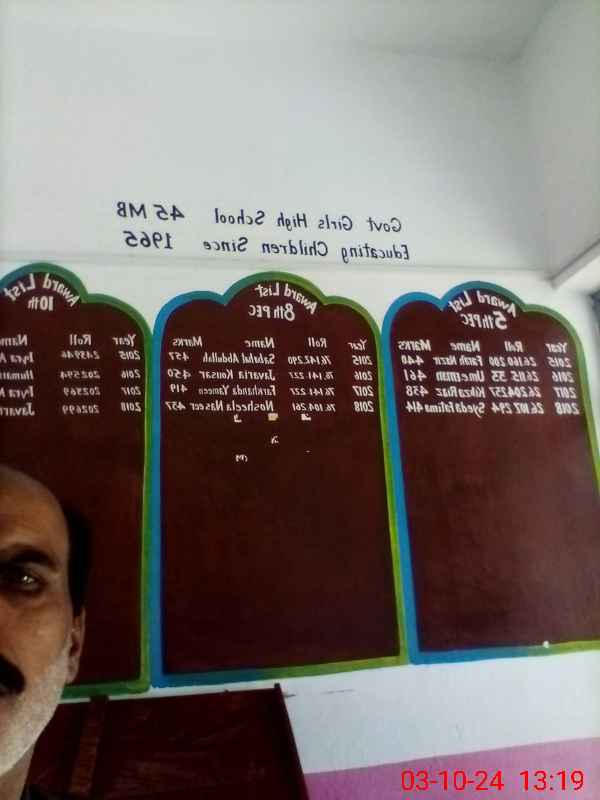 Govt Girls High School 45 MB
Educating Children Since 1965
Award List
5th PEC
Year Roll Name Marks
2015 26.160.200 Farah Nazir 440
2016 26.115.55 Umeeman 461
2017 26.204.257 Kinza Riaz 458
2018 26.107.294 Syeda Fatima 414
Award List
8th PEC
Year Roll Name Marks
2015 76.142.290 Sabahat Abdullah 457
2016 76.141.227 Javaria Kousar 450
2017 76.141.227 Farkhanda Yameen 419
2018 76.104.261 Nosheela Naseer 457
Award List
10th
Year Roll Name
2015 243946 Iqra
2016 202594
2017 202569 Iqra
2018 202699 Javar
03-10-24 13:19